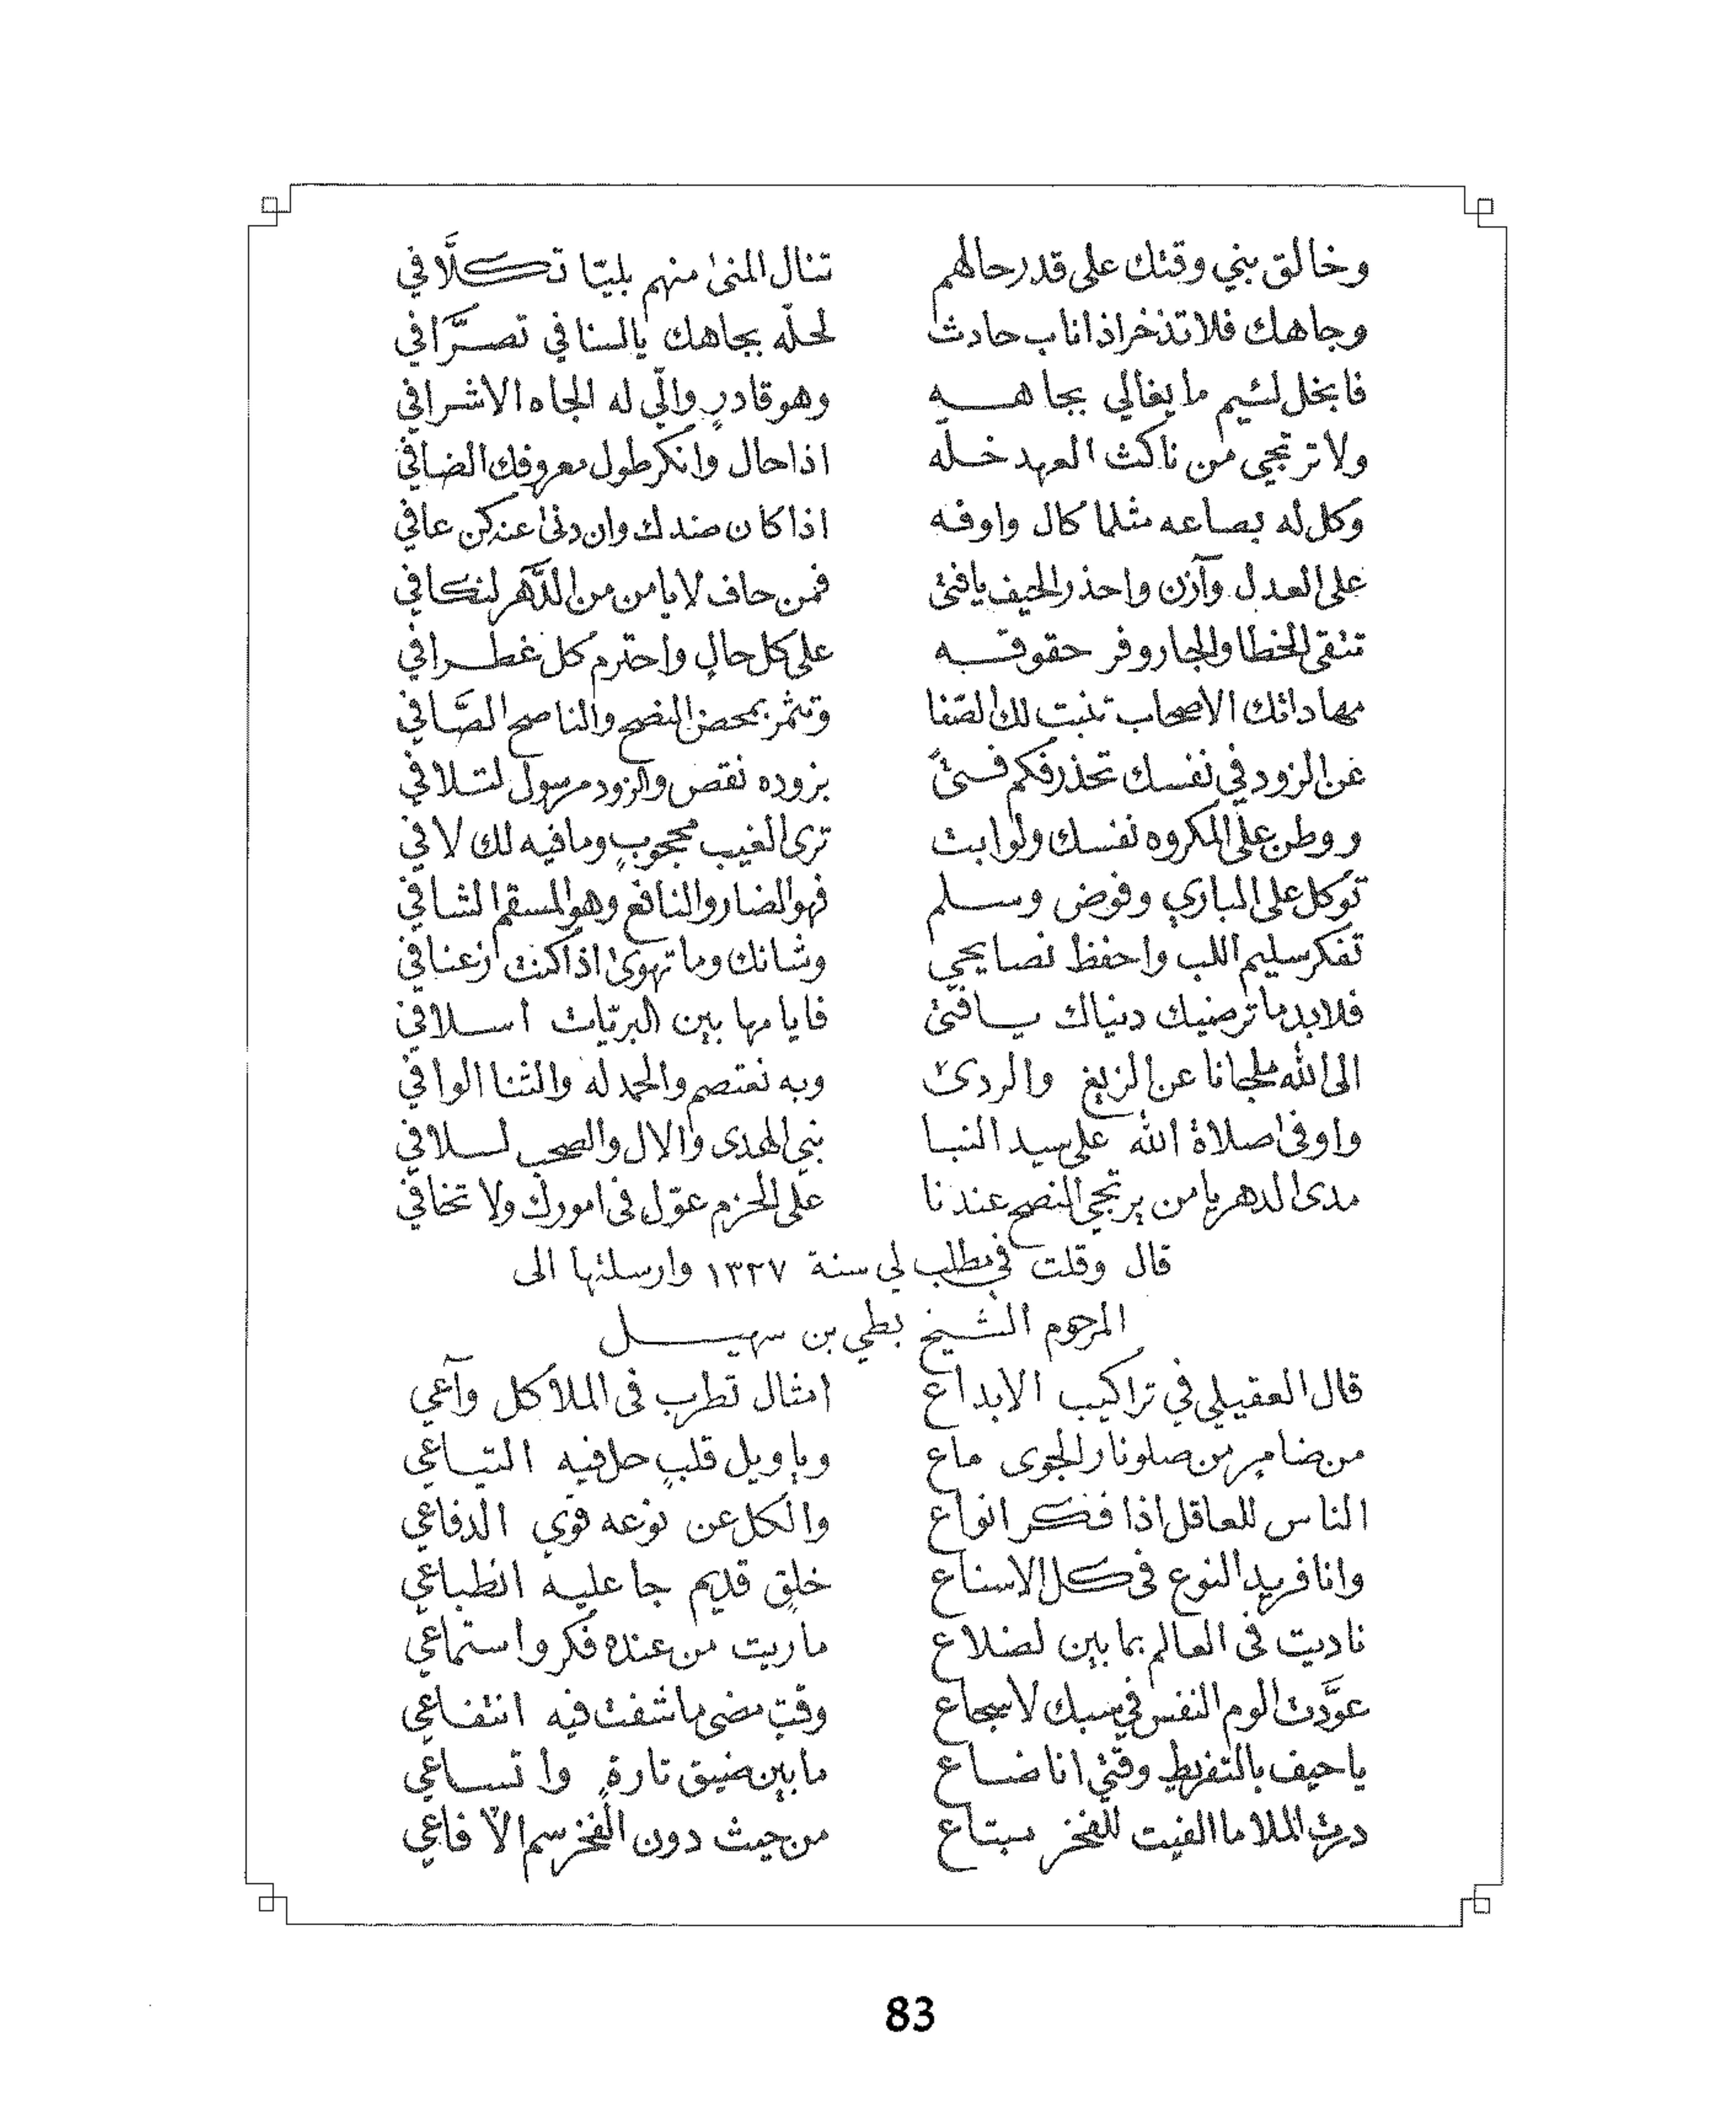 وخالق بني وقتك على قدر حالهم تنال المنىٰ منهم بليّا تكلَّافي
وجاهك فلا تذخر اذا ناب حادث لحلّه بجاهك يالسنافي تصرَّافي
فابخل لئيم ما يغالي بجاهه وهو قادرٍ والّي له الجاه الاشرافي
ولا ترتجي من ناكث العهد خلّه اذا حال وانكر طول معروفك الضافي
وكل له بصاعه مثلما كال واوفه اذا كان ضدك وان دنىٰ عنه كن عافي
على العدل وآزن واحذر الحيف يا فتىٰ فمن حاف لا يامن من الدَّهر لنكافي
تنقى الخطا والجار وفر حقوقه على كل حالٍ واحترم كل غطرافي
مهاداتك الاصحاب تنبت لك الصّفا وتثمر بمحض النصح والناصح الصَّافي
عن الزود في نفسك تحذر فكم فتىً بزوده نقص والزود مرسول لتلافي
ووطن على المكروه نفسك ولو ابت ترى الغيب محجوبٍ وما فيه لك لافي
توكل على الباري وفوض وسلم فهو الضار والنافع وهو المسقم الشافي
تفكر سليم اللب واحفظ نصايحي وشانك وما تهوىٰ اذا كنت ازعنافي
فلا بد ما ترضيك دنياك يا فتىٰ فايامها بين البريّات اسلافي
الى الله ملجانا عن الزيغ والردىٰ وبه نعتصم والحمد له والثنا الوافي
واوفىٰ صلاة الله على سيد النبا نبي الهدى والال والصحب لسلافي
مدى الدهر يا من يرتجي النصح عندنا على الحزم عوّل فى امورك ولا تخافي
قال وقلت في مطلب لي سنة ١٣٢٧ وارسلتها الى
المرحوم الشيخ بطي بن سهيل
قال العقيلي في تراكيب الابداع امثال تطرب فى الملا كل وآعي
من ضامرٍ من صلو نار الجوى ماع ويا ويل قلبٍ حل فيه التياعي
الناس للعاقل اذا فكر انواع والكل عن نوعه قوي الدفاعي
وانا فريد النوع فى كل الاسناع خلقٍ قديم جا عليه انطباعي
ناديت فى العالم بما بين لضلاع ما ريت من عنده فكر واستماعي
عوَّدت الوم النفس في سبك لاسجاع وقتٍ مضى ما شفت فيه انتفاعي
يا حيف بالتفريط وقتي انا ضاع ما بين ضيق تارةٍ واتساعي
درت الملا ما الفيت للفخر مبتاع من حيث دون الفخر سم الآ فاعي
83